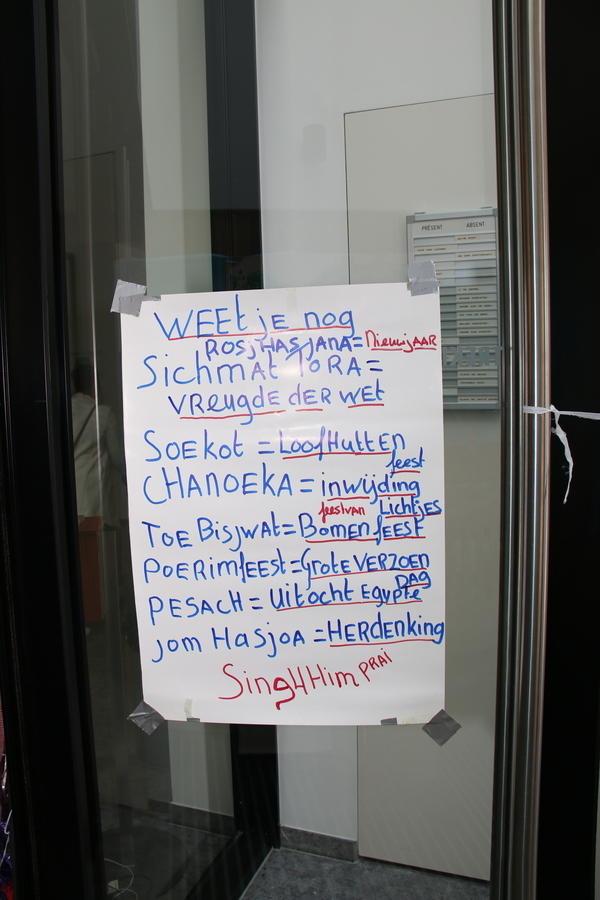 WEEt je nog
ROSjHASJANA= NieuwjAAR
SichmAt ToRA=
VReugde dER WEt
SOEKot = LoofHuttEN
feest
CHANOEKA = inwijding
feestvan Lichtjes
TOE Bisjwat= BomenfEESt
POERimfEESt= GroteVERZOEN
DAG
PESACH = Uittocht EgypTe
jom HasjoA = HERdenking
SingHHim PRAi
PRÉSENT ABSENT